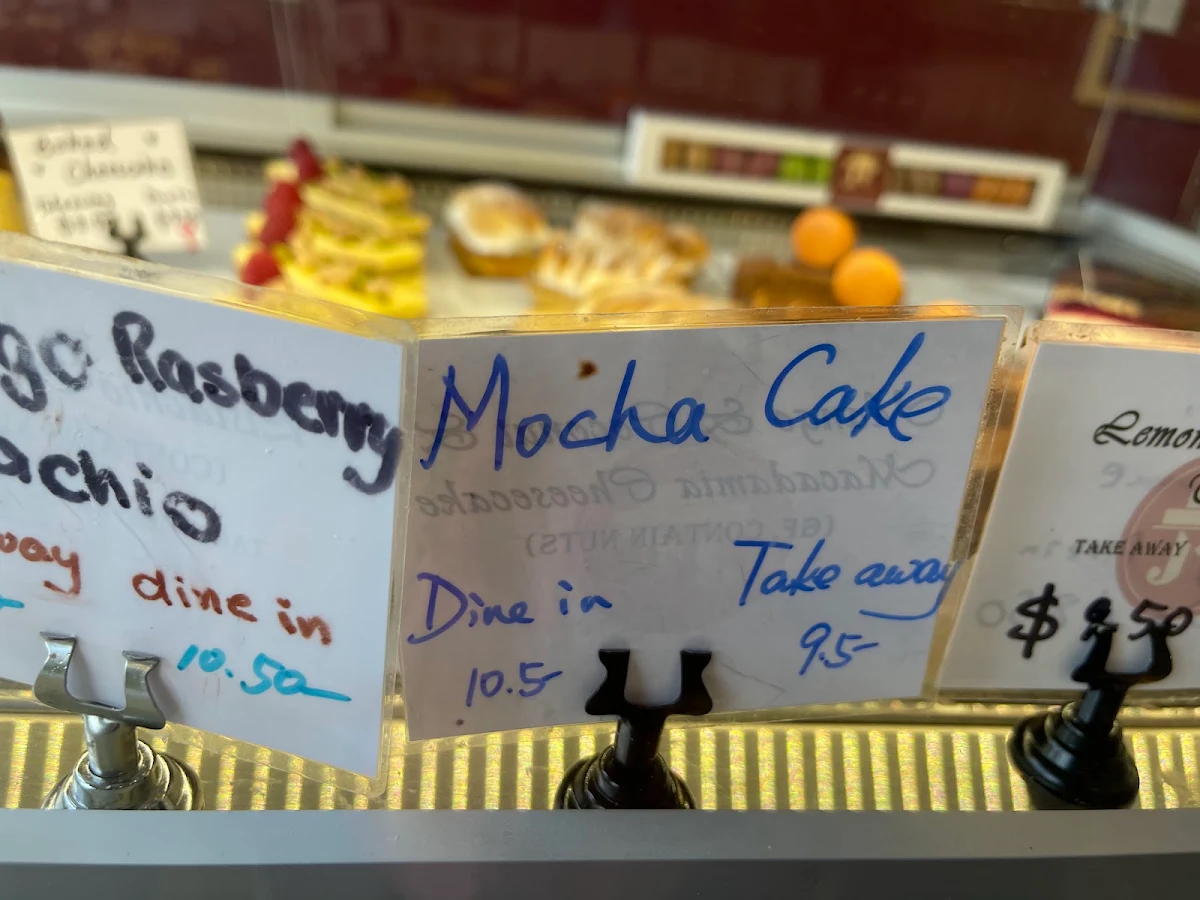 Baked
Cheesecake
go Rasberry
achio
way dine in
10.50
Mocha Cake
Dine in Take away
10.5 9.5
Macadamia Cheesecake
(GF, CONTAIN NUTS)
Lemon
TAKE AWAY
$ 8.50